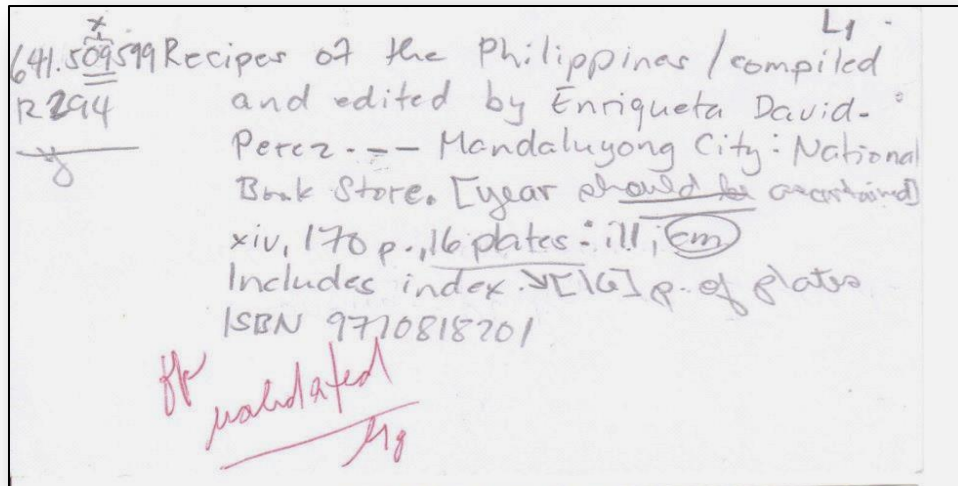 L1
x
641.509599 Recipes of the Philippines / compiled
R294 and edited by Enriqueta David-
y Perez. -- Mandaluyong City : National
Book Store. [year should be ascertained]
xiv, 170 p., 16 plates : ill ; cm
Includes index. [16] p. of plates
ISBN 9710818201
validated